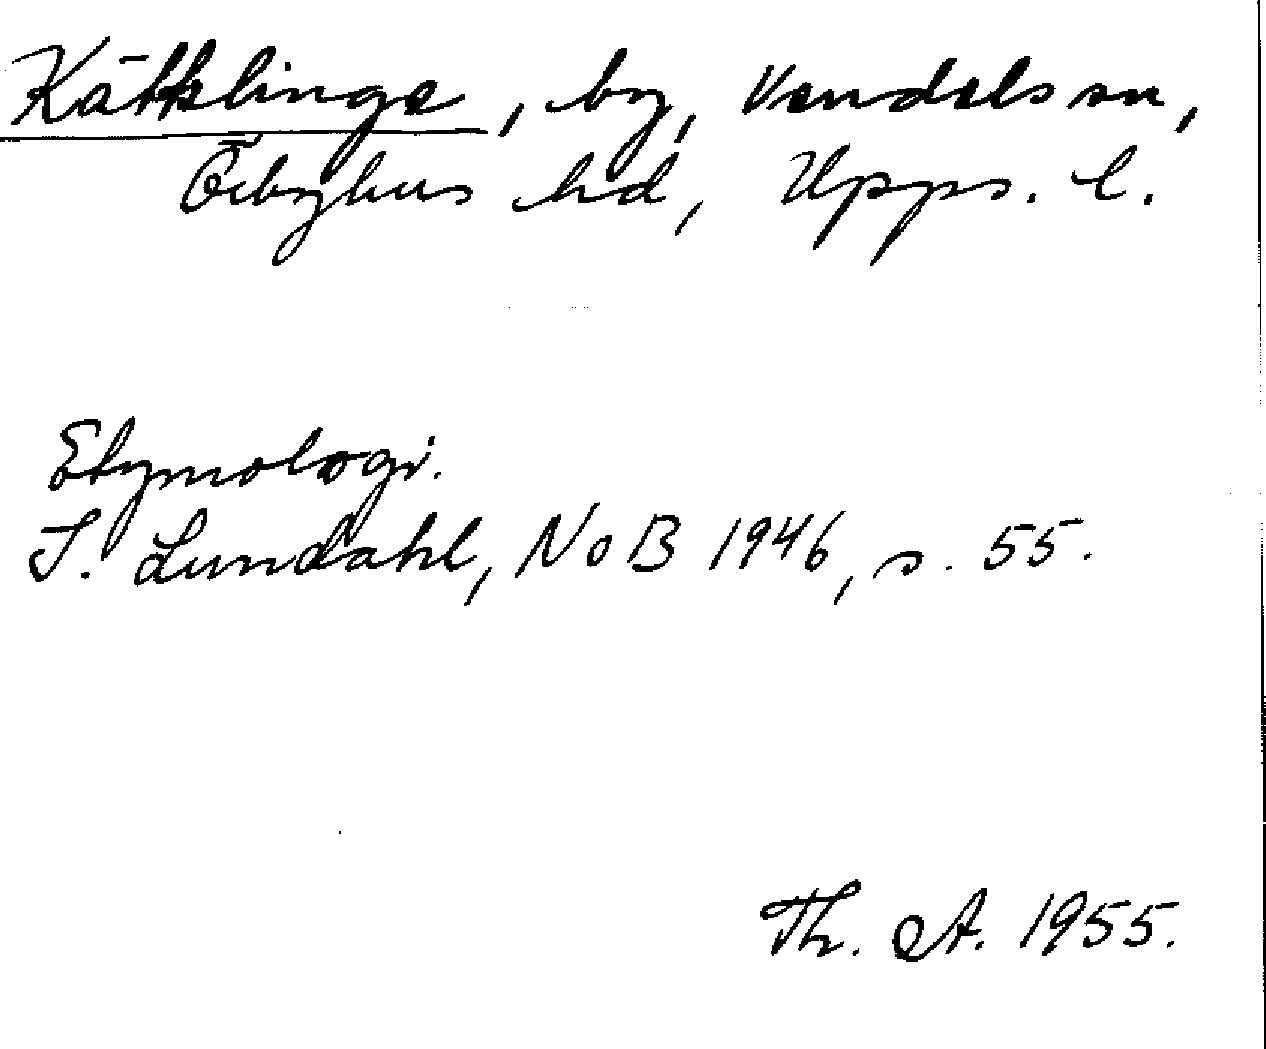 Kättslinge, by, Vendels sn,
Örbyhus hd, Upps. l.
Etymologi.
I. Lundahl, NoB 1946, s. 55.
Th. A. 1955.